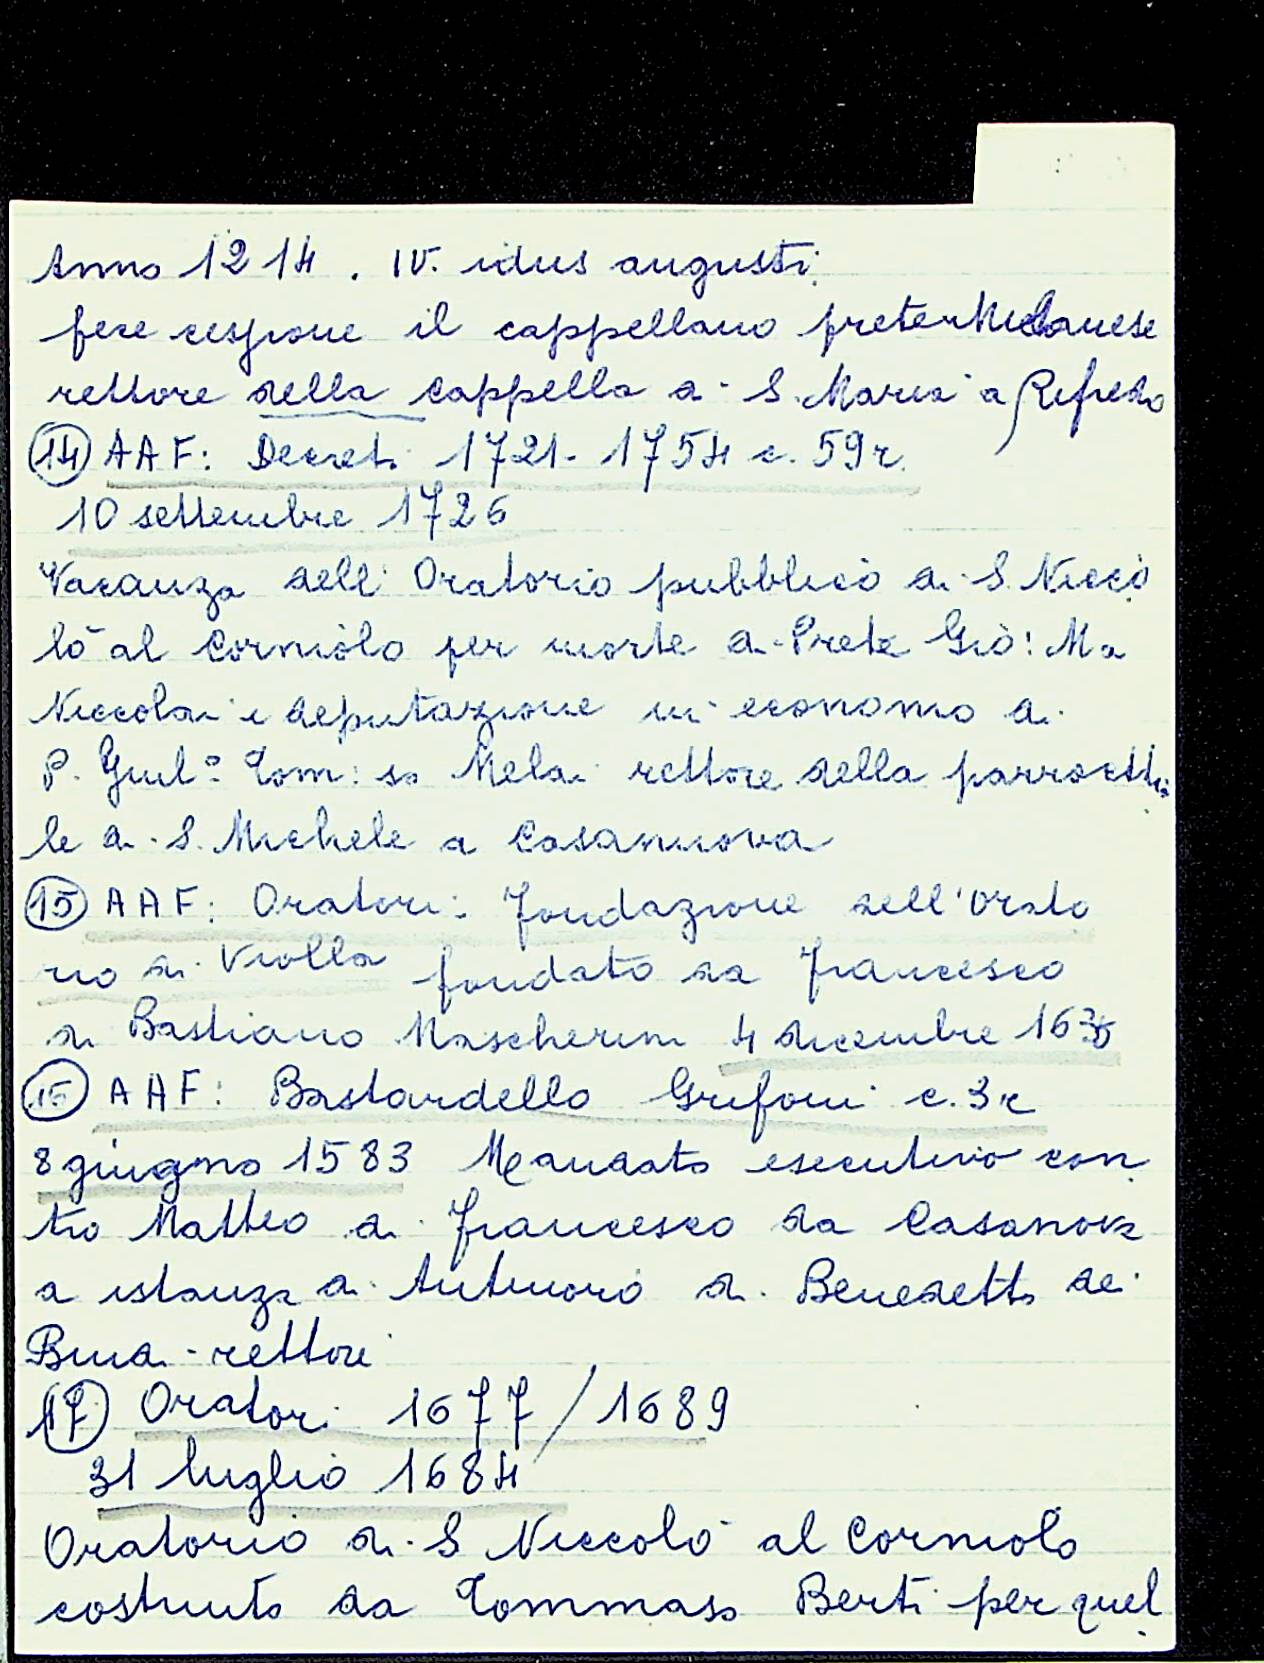 Anno 1214. IV. idus augusti
fece cessione il cappellano prete Milanese
rettore della cappella di S. Maria a Rifredo
(14) AAF: Decreti 1721-1754 c. 59r.
10 settembre 1726
Vacanza dell'Oratorio pubblico di S. Nicco
lò al Corniolo per morte di Prete Gio: Ma
Niccolai e deputazione in economo di
P. Giul° Tom:so Melai rettore della parrocchia
le di S. Michele a Casanuova
(15) AAF: Oratori: Fondazione dell'Orato
rio di Violla fondato da Francesco
di Bastiano Mascherini 4 dicembre
(16) AAF: Bastardello Grifoni c. 3r
8 giugno 1583 Mandato esecutivo con
tro Matteo di Francesco da Casanova
a istanza di Antinoro di Benedetto dei
rettore
(17) Oratori 1677/1689
31 luglio 1684
Oratorio di S Niccolò al Corniolo
costruito da Tommaso Berti per quel